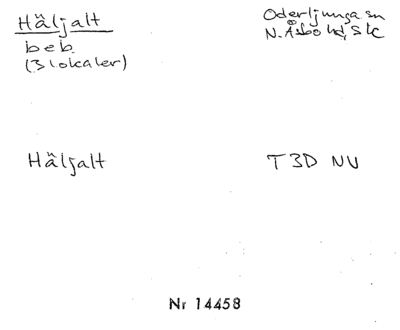 Häljalt
beb.
(3 lokaler)
Oderljunga sn
N. Åsbo hd, Sk
Häljalt
T3D NV
Nr 14458